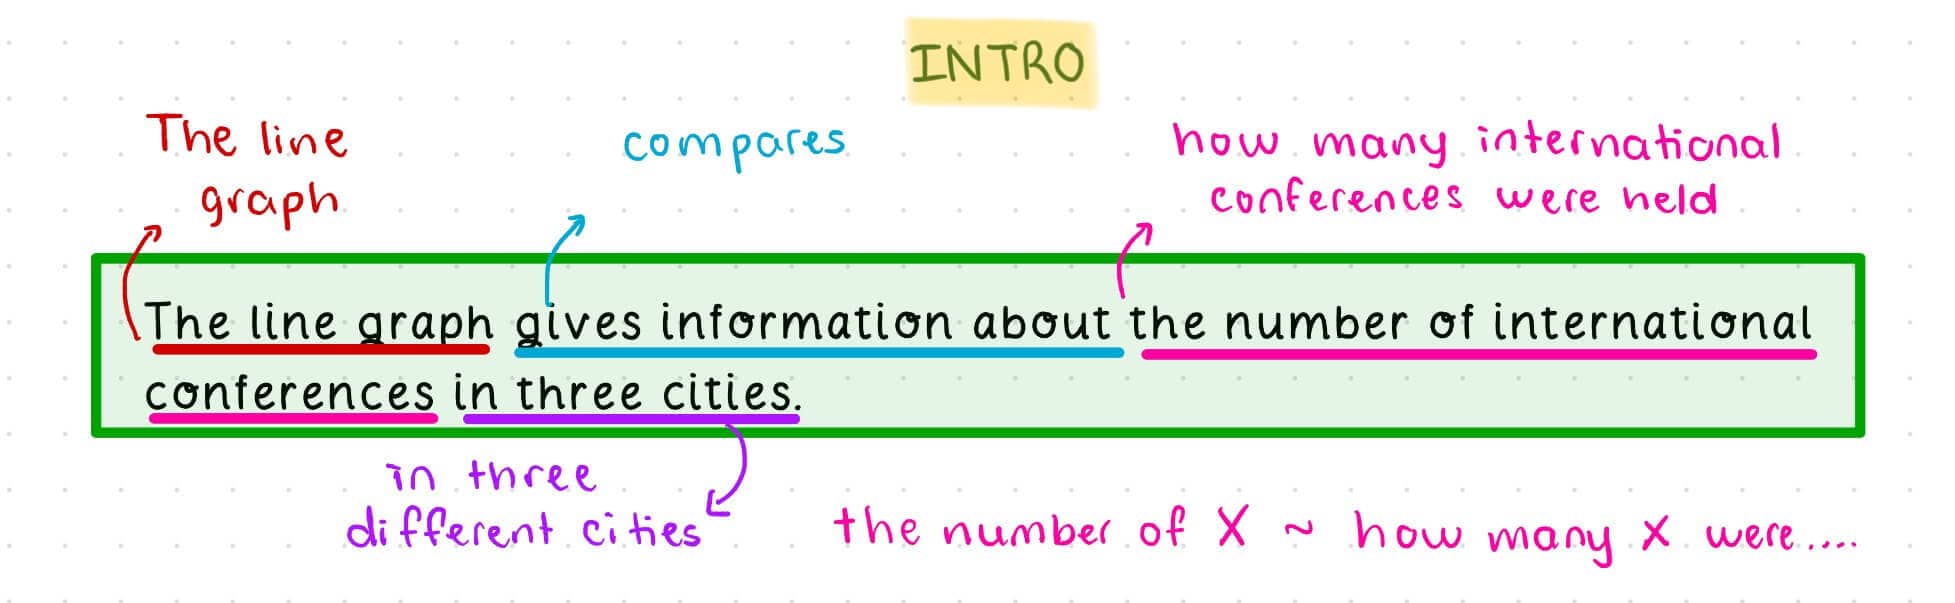 INTRO
The line
graph
compares
how many international
conferences were held
The line graph gives information about the number of international
conferences in three cities.
in three
different cities
the number of X ~ how many X were....